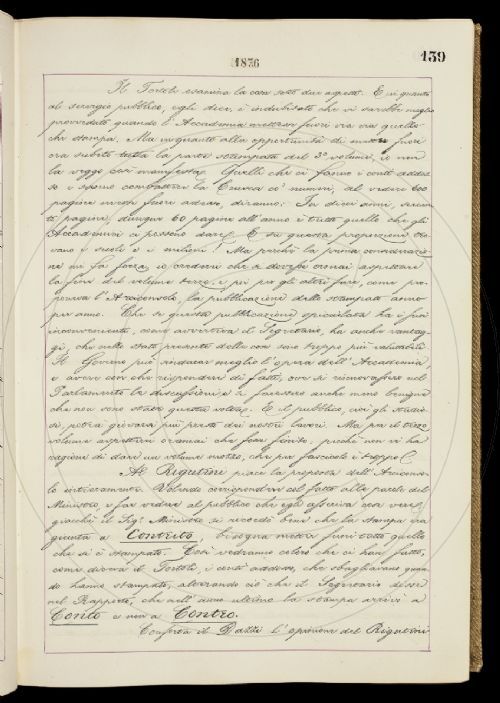 1876
139
Il Tortoli esamina la cosa sotto due aspetti. E in quanto
al servizio pubblico, egli dice, è indubitato che vi sarebbe meglio
provveduto quando l'Accademia mettesse fuori via via quello
che stampa. Ma in quanto alla opportunità di mettere fuori
ora subito tutta la parte stampata del 3º volume, io non
la veggo così manifesta. Quelli che ci fanno i conti addosso
se i stessi combattere la Crusca co' numeri, al vedere 600
pagine uscite fuori adesso, diranno: In dieci anni, seicen-
to pagine, dunque 60 pagine all'anno è tutto quello che gli
Accademici ci possono dare! E in questa proporzione
vano i secoli e i milioni! Ma perchè la prima considerazio-
ne mi fa forza, io crederei che si dovesse oramai aspettare
la fine del volume terzo, e poi per gli altri fare, come pro-
poneva l'Arciconsolo, la pubblicazione dello stampato anno
per anno. Che se questa pubblicazione spicciolata ha i suoi
inconvenienti, come avvertiva il Segretario, ha anche vantag-
gi, che nello stato presente della cosa sono troppo più valutabili.
Il Governo può sindacar meglio l'opera dell'Accademia,
e avere con che rispondere di fatto, ove si rinnovassero nel
Parlamento le discussioni e si facessero anche meno benigne
che non sono state questa volta. E il pubblico, cioè gli studio-
si, potrà giovarsi più presto dei nostri lavori. Ma per il terzo
volume aspetterei oramai che fosse finito, perchè non vi ha
ragione di dare un volume mozzo, che per fascicolo è troppo.
Al Rigutini piace la proposta dell'Arciconso-
lo interamente. Volendo corrispondere col fatto alla parola del
Ministro, e far vedere al pubblico che egli asseriva cosa vera,
giacchè il Sig. Ministro si ricordò bene che la stampa era
giunta a Contrito, bisogna metter fuori tutto quello
che si è stampato. Così vedranno coloro che ci han fatto,
come diceva il Tortoli, i conti addosso, che sbagliavano quan-
do hanno stampato, alterando ciò che il Segretario disse
nel Rapporto, che nell'anno ultimo la stampa arrivò a
Conto e non a Contro.
Conforta il Dazzi l'opinione del Rigutini